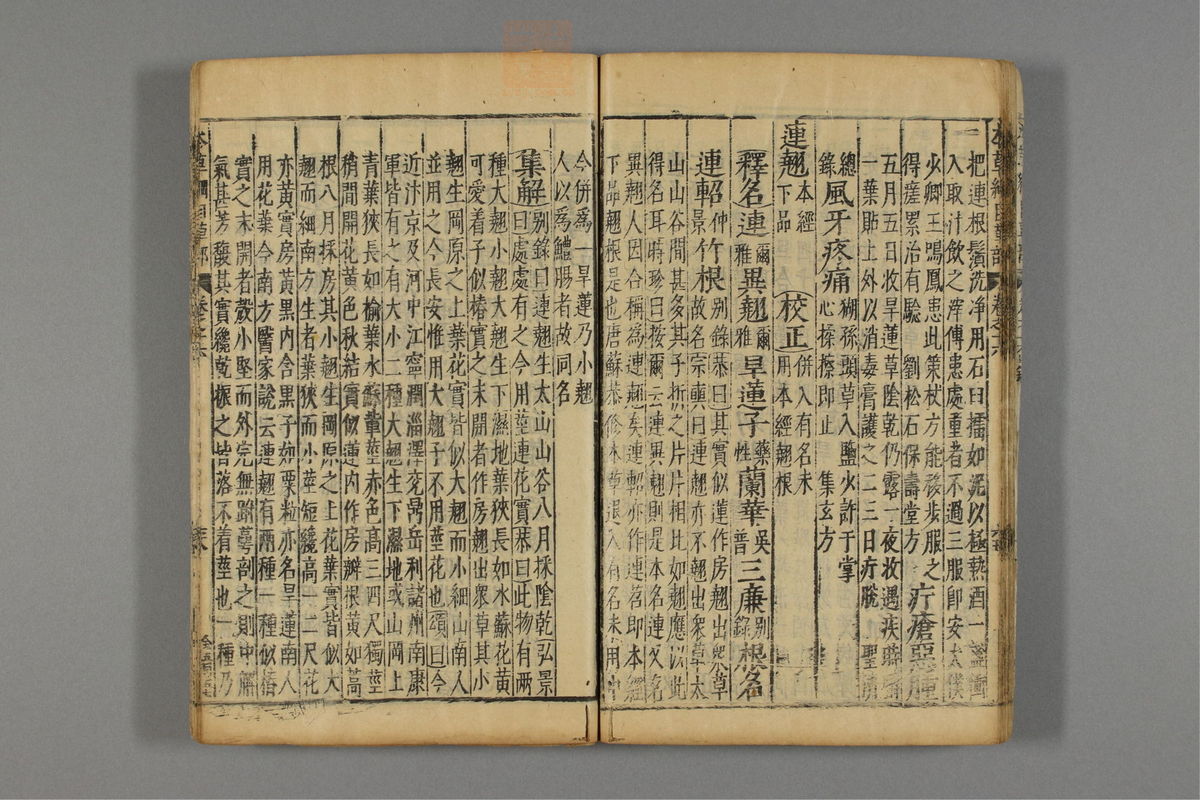 一把連根鬚洗净用石臼擂如泥以極熱酒一盞衝
入取汁飲之滓傅患處重者不過三服即安太僕
少卿王鳴鳳患此策杖方能移步服之
得瘥累治有驗 劉松石保壽堂方 疔瘡惡腫
五月五日收旱蓮草陰乾仍露一夜收遇疾時
一葉貼上外以消毒膏護之二三日疔脫 聖濟
總
錄 風牙疼痛 猢孫頭草入鹽火許于掌
心揉擦即止 集玄方
連翹 本經
下品 校正 併入有名未
用本經翹根
釋名 連 爾
雅 異翹 爾
雅 旱蓮子 藥
性 蘭華 吳
普 三廉 別
錄 根名
連軺 仲
景 竹根 別錄恭曰其實似蓮作房翹出衆草
故名宗奭曰連翹亦不翹出衆草太
山山谷間甚多其子折之片片相比如翹應以此
得名耳時珍曰按爾云連異翹則是本名連又名
異翹人因合稱為連翹矣連軺亦作連苕即本經
下品翹根是也唐蘇恭修本草退入有名未用
今併爲一旱蓮乃小翹
人以爲鱧腸者故同名
集解 別錄曰連翹生太山山谷八月採陰乾弘景
曰處處有之今用莖連花實恭曰此物有兩
種大翹小翹大翹生下濕地葉狹長如水蘇花黃
可愛着子似椿實之未開者作房翹出衆草其小
翹生岡原之上葉花實皆似大翹而小細山南人
並用之今長安惟用大翹子不用莖花也頌曰今
近汴京及河中江寧潤淄澤兗岳利諸州南康
軍皆有之有大小二種大翹生下濕地或山岡上
青葉狹長如榆葉水蘇軰莖赤色高三四尺獨莖
稍間開花黃色秋結實似蓮内作房瓣根黃如蒿
根八月採房其小翹生岡原之上花葉實皆似大
翹而細南方生者葉狹而小莖短纔高一二尺花
亦黃實房黃黑内含黑子如粟粒亦名旱蓮南人
用花葉今南方醫家說云連翹有兩種一種似椿
實之未開者殼小堅而外完無跗萼剖之則中解
氣甚芳馥其實纔乾振之皆落不着莖也一種乃